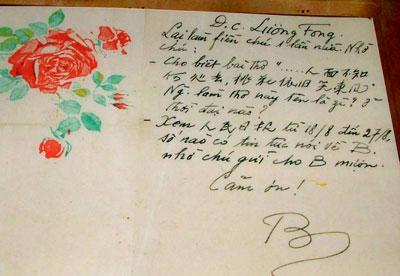 Đ.c. Lương Fong.
Lại làm fiền chú 1 lần nữa. Nhờ
chú:
- Cho biết bài thơ "......人面不知
何処去, 桃花依旧笑東风"
Ng. làm thơ này tên là gì? ở
Thời đại nào?
- Xem 人民日报 từ 18/8 đến 27/8,
số nào có tin tức nói về B.
nhờ chú gửi cho B mượn.
Cảm ơn!
B